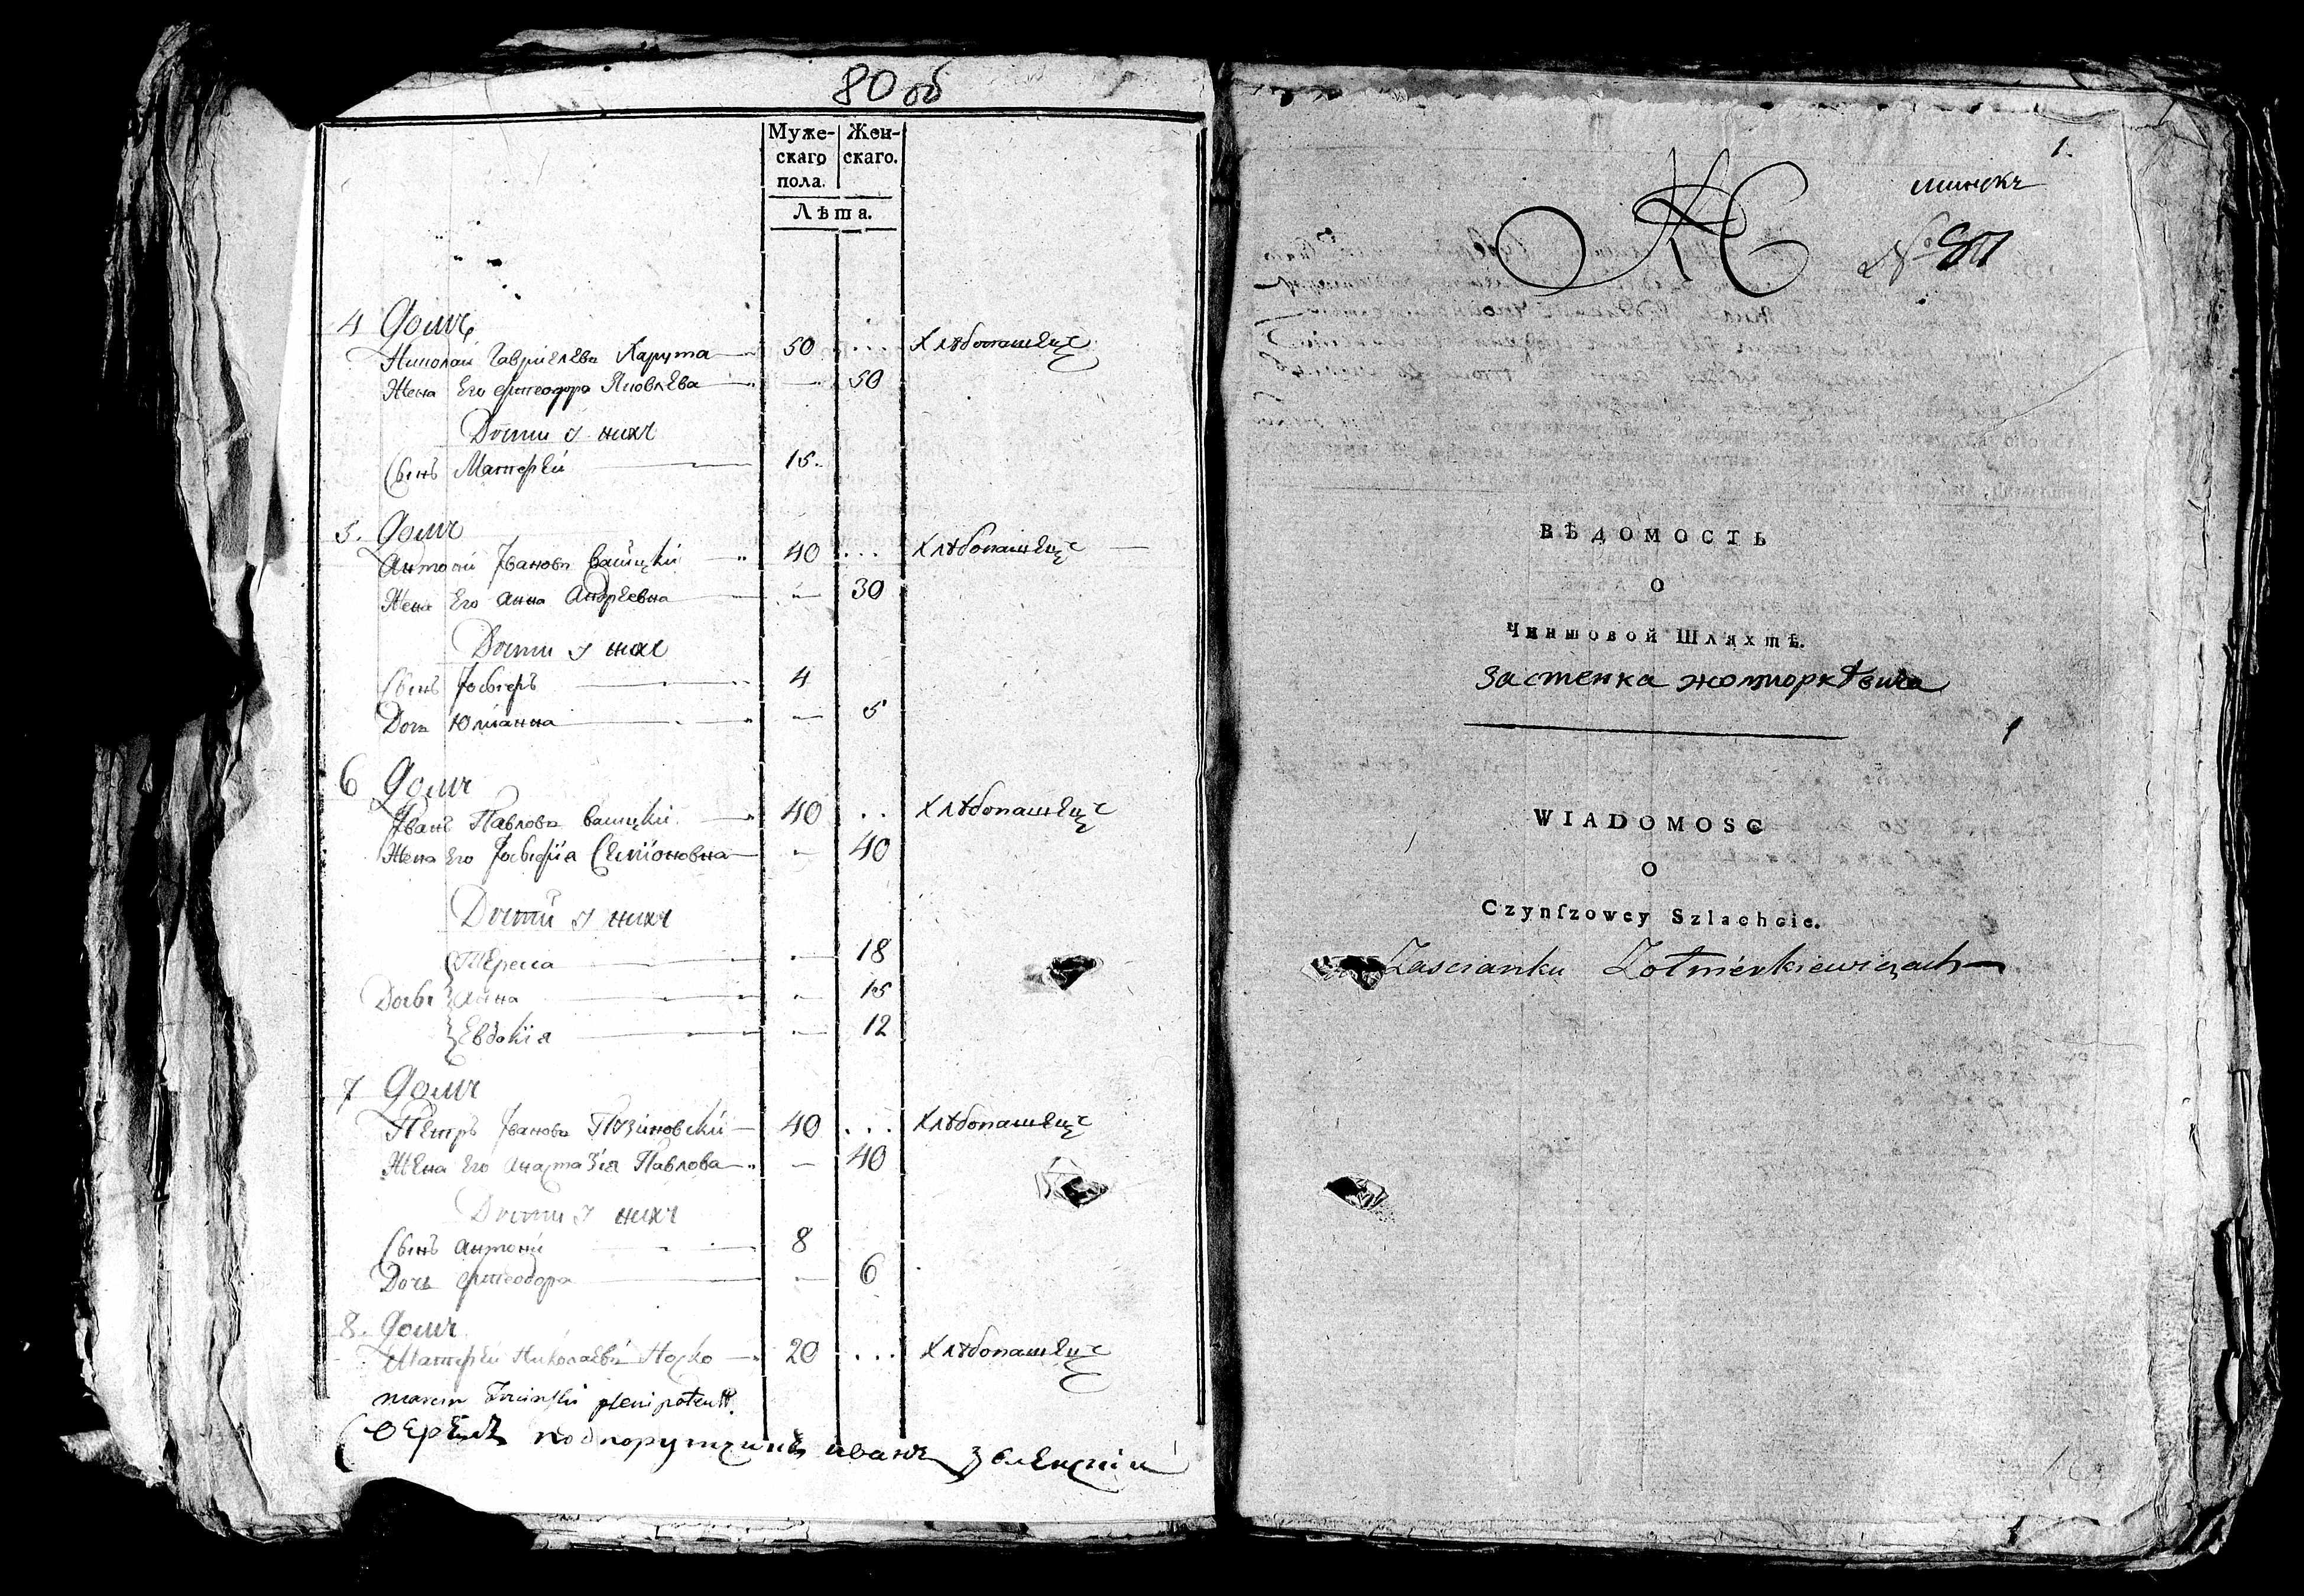 80 об
Муже- Жен-
скаго скаго.
пола.
Лѣта.
4 Домъ
Николай Гавриелевъ Харута 50 ... Хлѣбопашецъ
Жена Его Фтеодора Яковлева — 50
Дѣти у нихъ
Сынъ Маттефѣй 15.
5. Домъ
Антоній Ївановъ 40 ... Хлѣбопашецъ —
Жена Его Анна Андреевна — 30
Дѣти у нихъ
Сынъ Їосыефъ 4
Дочь Юліанна — 5
6 Домъ
Їванъ Павловъ 40 .. Хлѣбопашецъ
Жена Его Їосыефїа Семїоновна — 40
Дѣти у нихъ
Тереса — 18
Анна — 15
Евдокїя — 12
7 Домъ
Петръ Ївановъ 40 ... Хлѣбопашецъ
Жена Его Анастазїя Павлова — 40
Дѣти у нихъ
Сынъ Антоній 8
Дочь Фтеодора — 6
8. Домъ
Маттефѣй Николаевъ Носко 20 ... Хлѣбопашецъ
plenipotent
подпорутчикъ иванъ
1.
минскъ
№
ВѢДОМОСТЬ
О
Чиншовой Шляхтѣ.
Застенка
1
WIADOMOSC
O
Czynſzowey Szlachcie.
Zascianku Zołnierkiewiczach